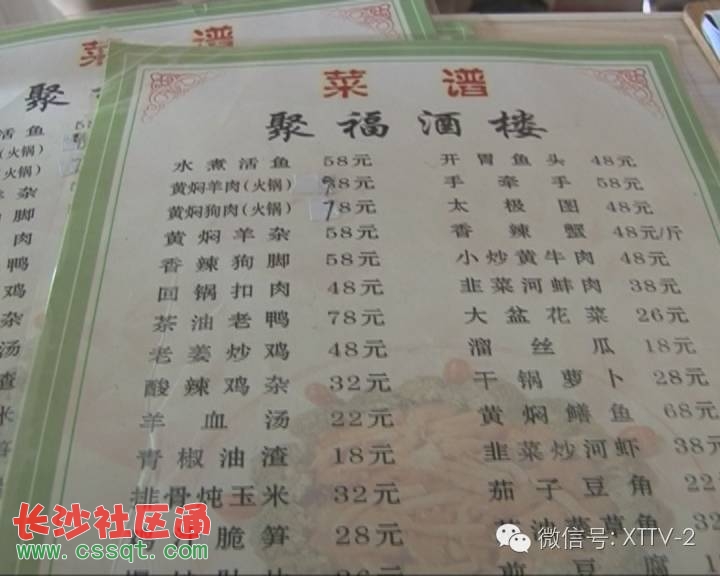 菜 谱
聚
活鱼 58
(火锅)
(火锅)
羊杂
脚
肉
鸭
鸡
杂
汤
渣
米
笋
菜 谱
聚福酒楼
水煮活鱼 58元
黄焖羊肉(火锅) 98元
黄焖狗肉(火锅) 78元
黄焖羊杂 58元
香辣狗脚 58元
回锅扣肉 48元
茶油老鸭 78元
老姜炒鸡 48元
酸辣鸡杂 32元
羊血汤 22元
青椒油渣 18元
排骨炖玉米 32元
脆笋 28元
开胃鱼头 48元
手牵手 58元
太极图 48元
香辣蟹 48元/斤
小炒黄牛肉 48元
韭菜河蚌肉 38元
大盆花菜 26元
溜丝瓜 18元
干锅萝卜 28元
黄焖鳝鱼 68元
韭菜炒河虾 38元
茄子豆角 22
煎豆腐
长沙社区通
www.cssqt.com
微信号: XTTV-2